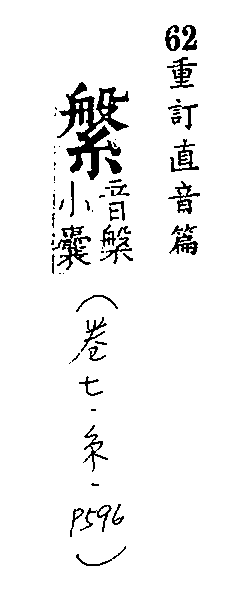 62重訂直音篇
縏
音槃
小囊
(卷七·糸·P596)